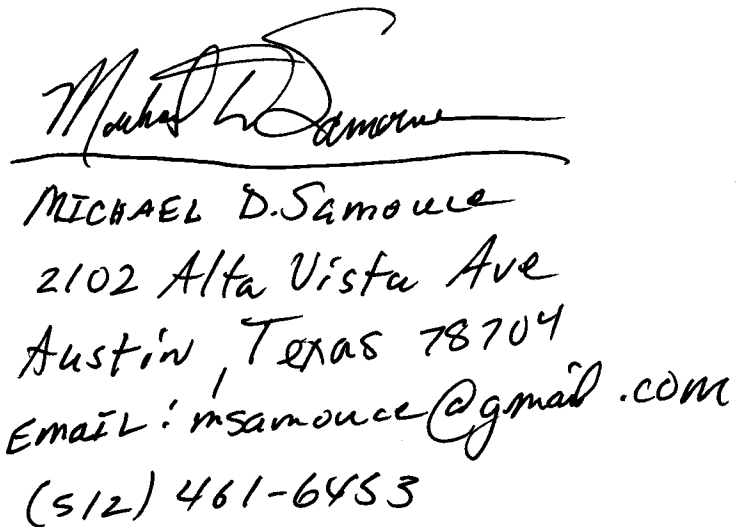 Michael D. Samouce
MICHAEL D. Samouce
2102 Alta Vista Ave
Austin, Texas 78704
EmaIL: msamouce@gmail.com
(512) 461-6453